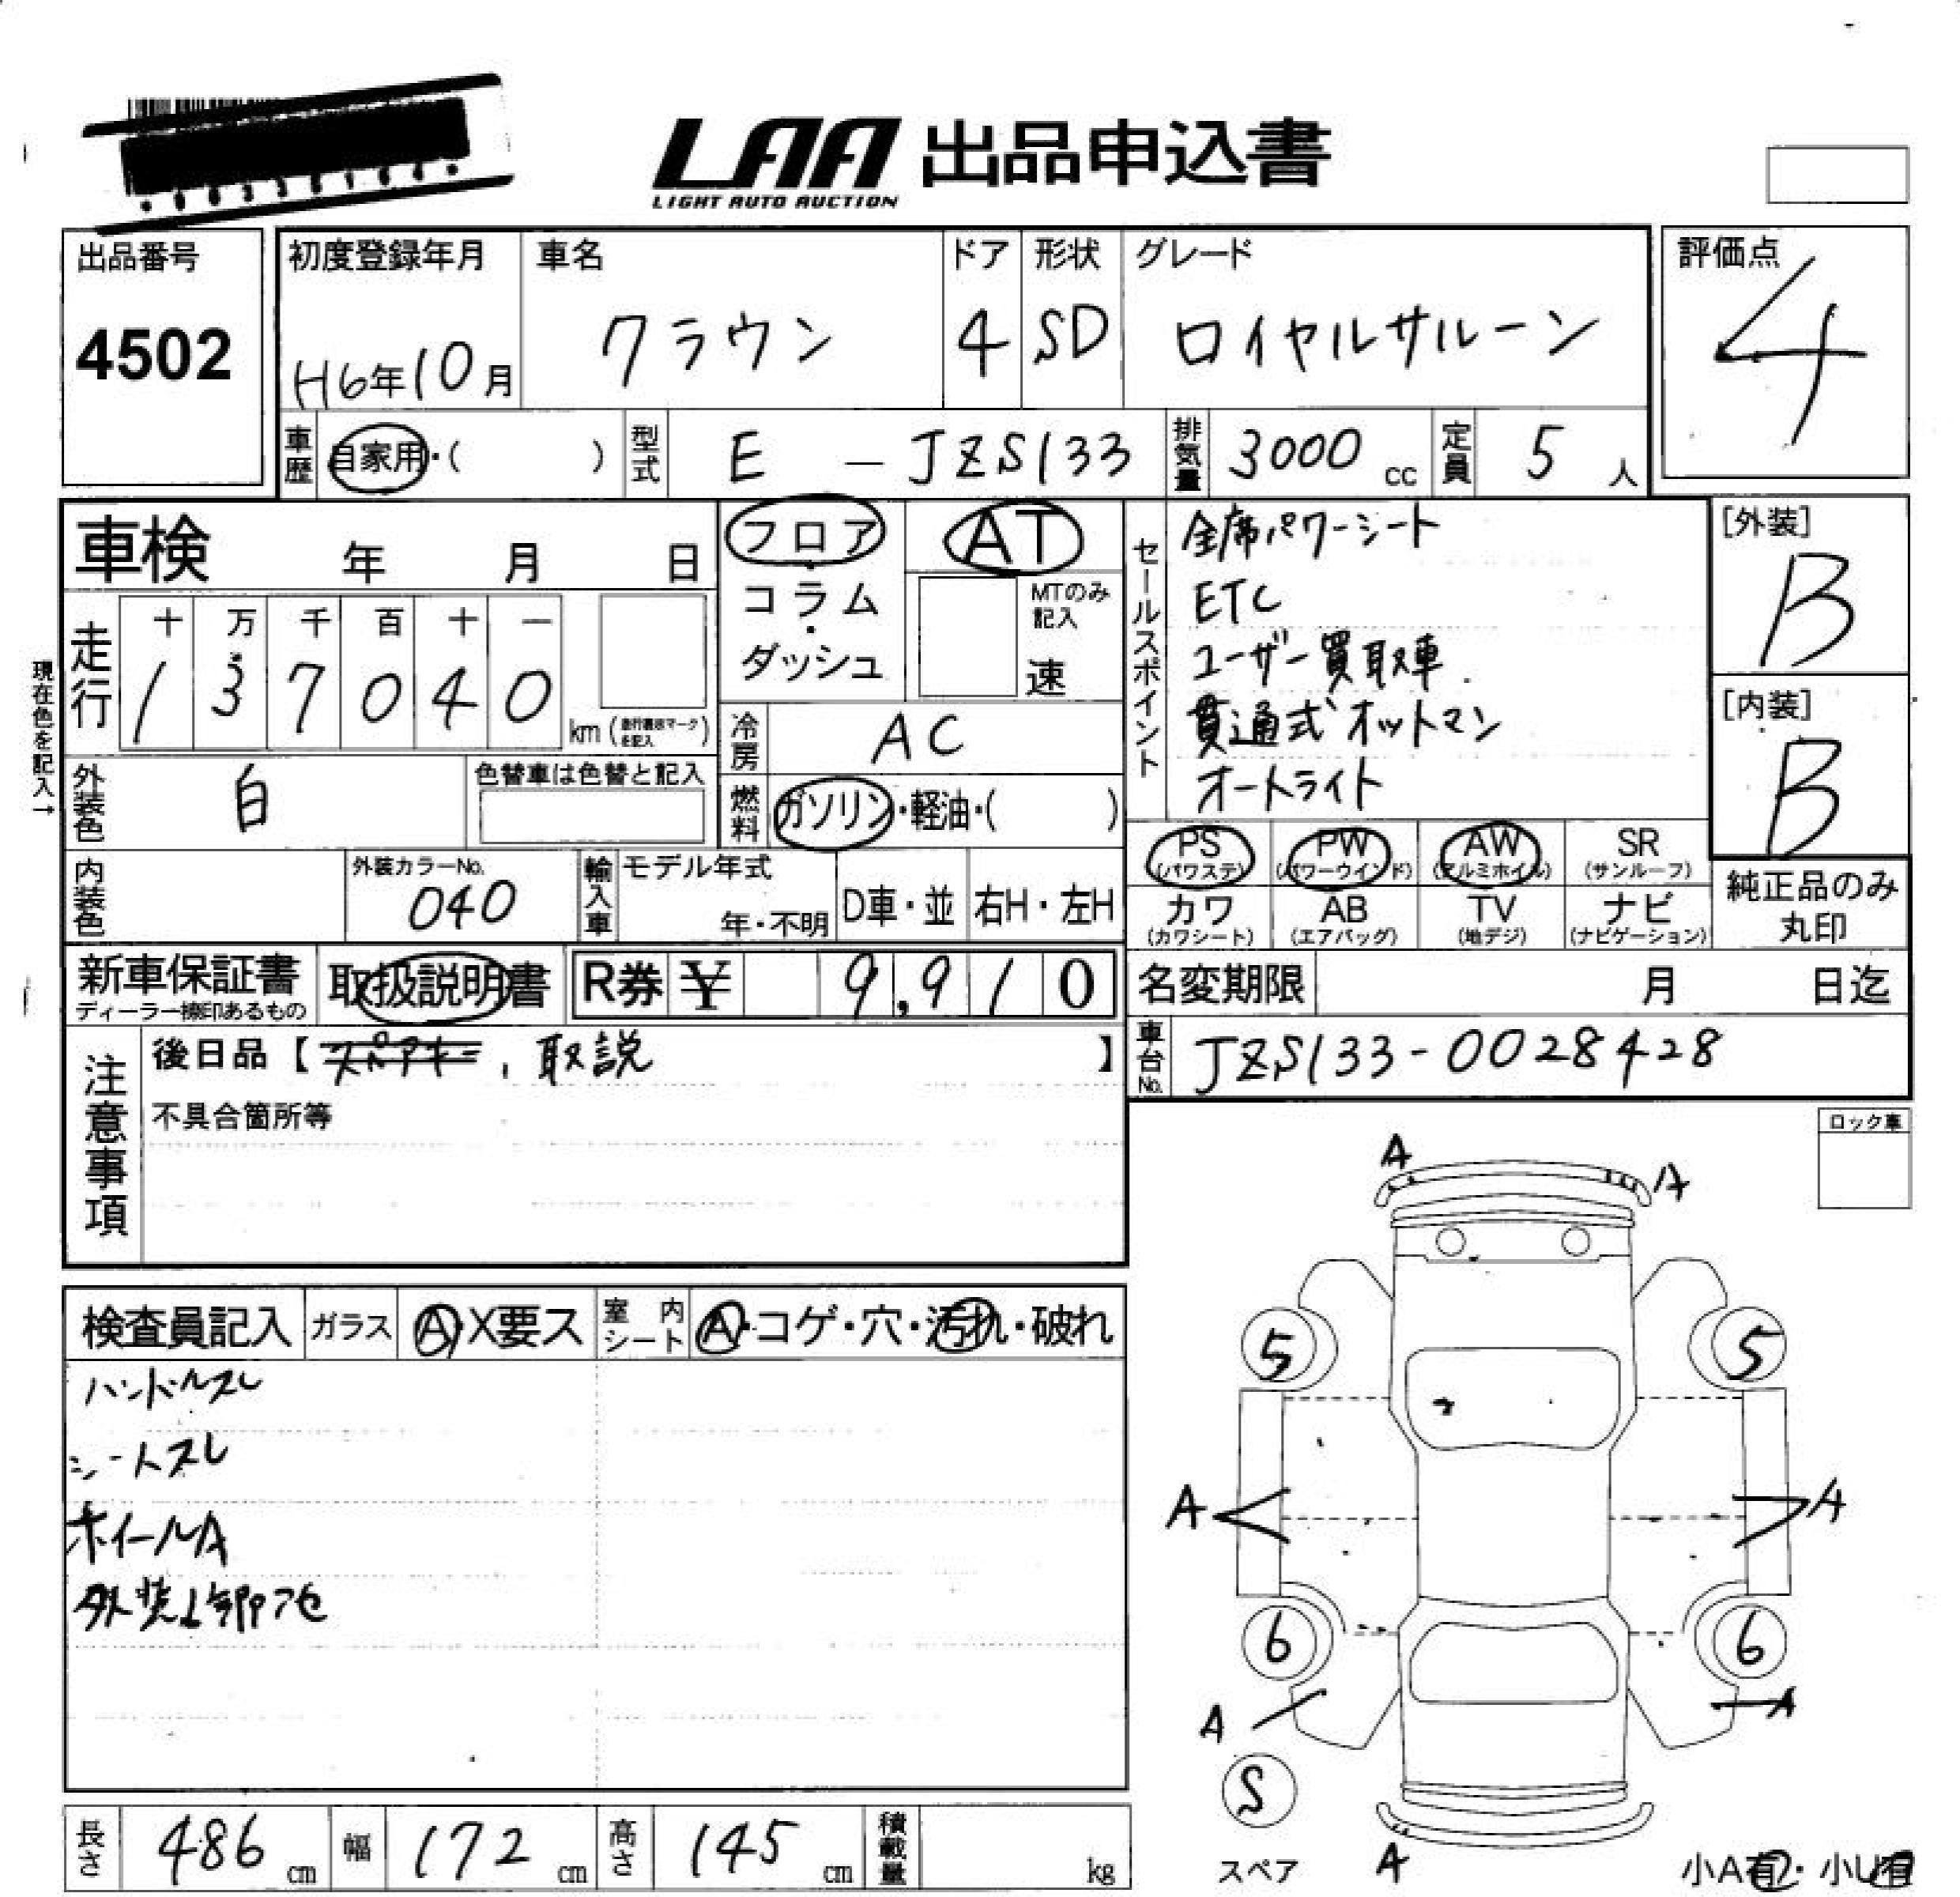 LAA 出品申込書
LIGHT AUTO AUCTION
出品番号
4502
初度登録年月
H6年10月
車名
クラウン
ドア
4
形状
SD
グレード
ロイヤルサルーン
評価点
4
車歴 自家用・( )
型式 E - JZS133
排気量 3000 cc
定員 5 人
車検 年 月 日
走行
十 万 千 百 十 一
1 3 7 0 4 0
km (走行書出マークを記入)
現在色を記入→
外装色 白
色替車は色替と記入
内装色
外装カラーNo.
040
輸入車 モデル年式
年・不明
D車・並
右H・左H
フロア
・
コラム
・
ダッシュ
AT
MTのみ
記入
速
冷房 AC
燃料 ガソリン・軽油・( )
セールスポイント
全席パワーシート
ETC
ユーザー買取車
貫通式オットマン
オートライト
[外装]
B
[内装]
B
PS PW AW SR
(パワステ) (パワーウインド) (アルミホイル) (サンルーフ)
カワ AB TV ナビ
(カワシート) (エアバッグ) (地デジ) (ナビゲーション)
純正品のみ
丸印
新車保証書
ディーラー捺印あるもの
取扱説明書
R券 ¥ 9,910
名変期限 月 日迄
車台No. JZS133-0028428
注意事項
後日品【スペアキー, 取説 】
不具合箇所等
ロック車
検査員記入 ガラス A・X要ス 室内シート A・コゲ・穴・汚れ・破れ
ハンドルスレ
シートスレ
ホイールA
A
A
5
5
A
A
6
6
A
A
S
スペア
A
小A有・小U有
長さ 486 cm
幅 172 cm
高さ 145 cm
積載量 kg